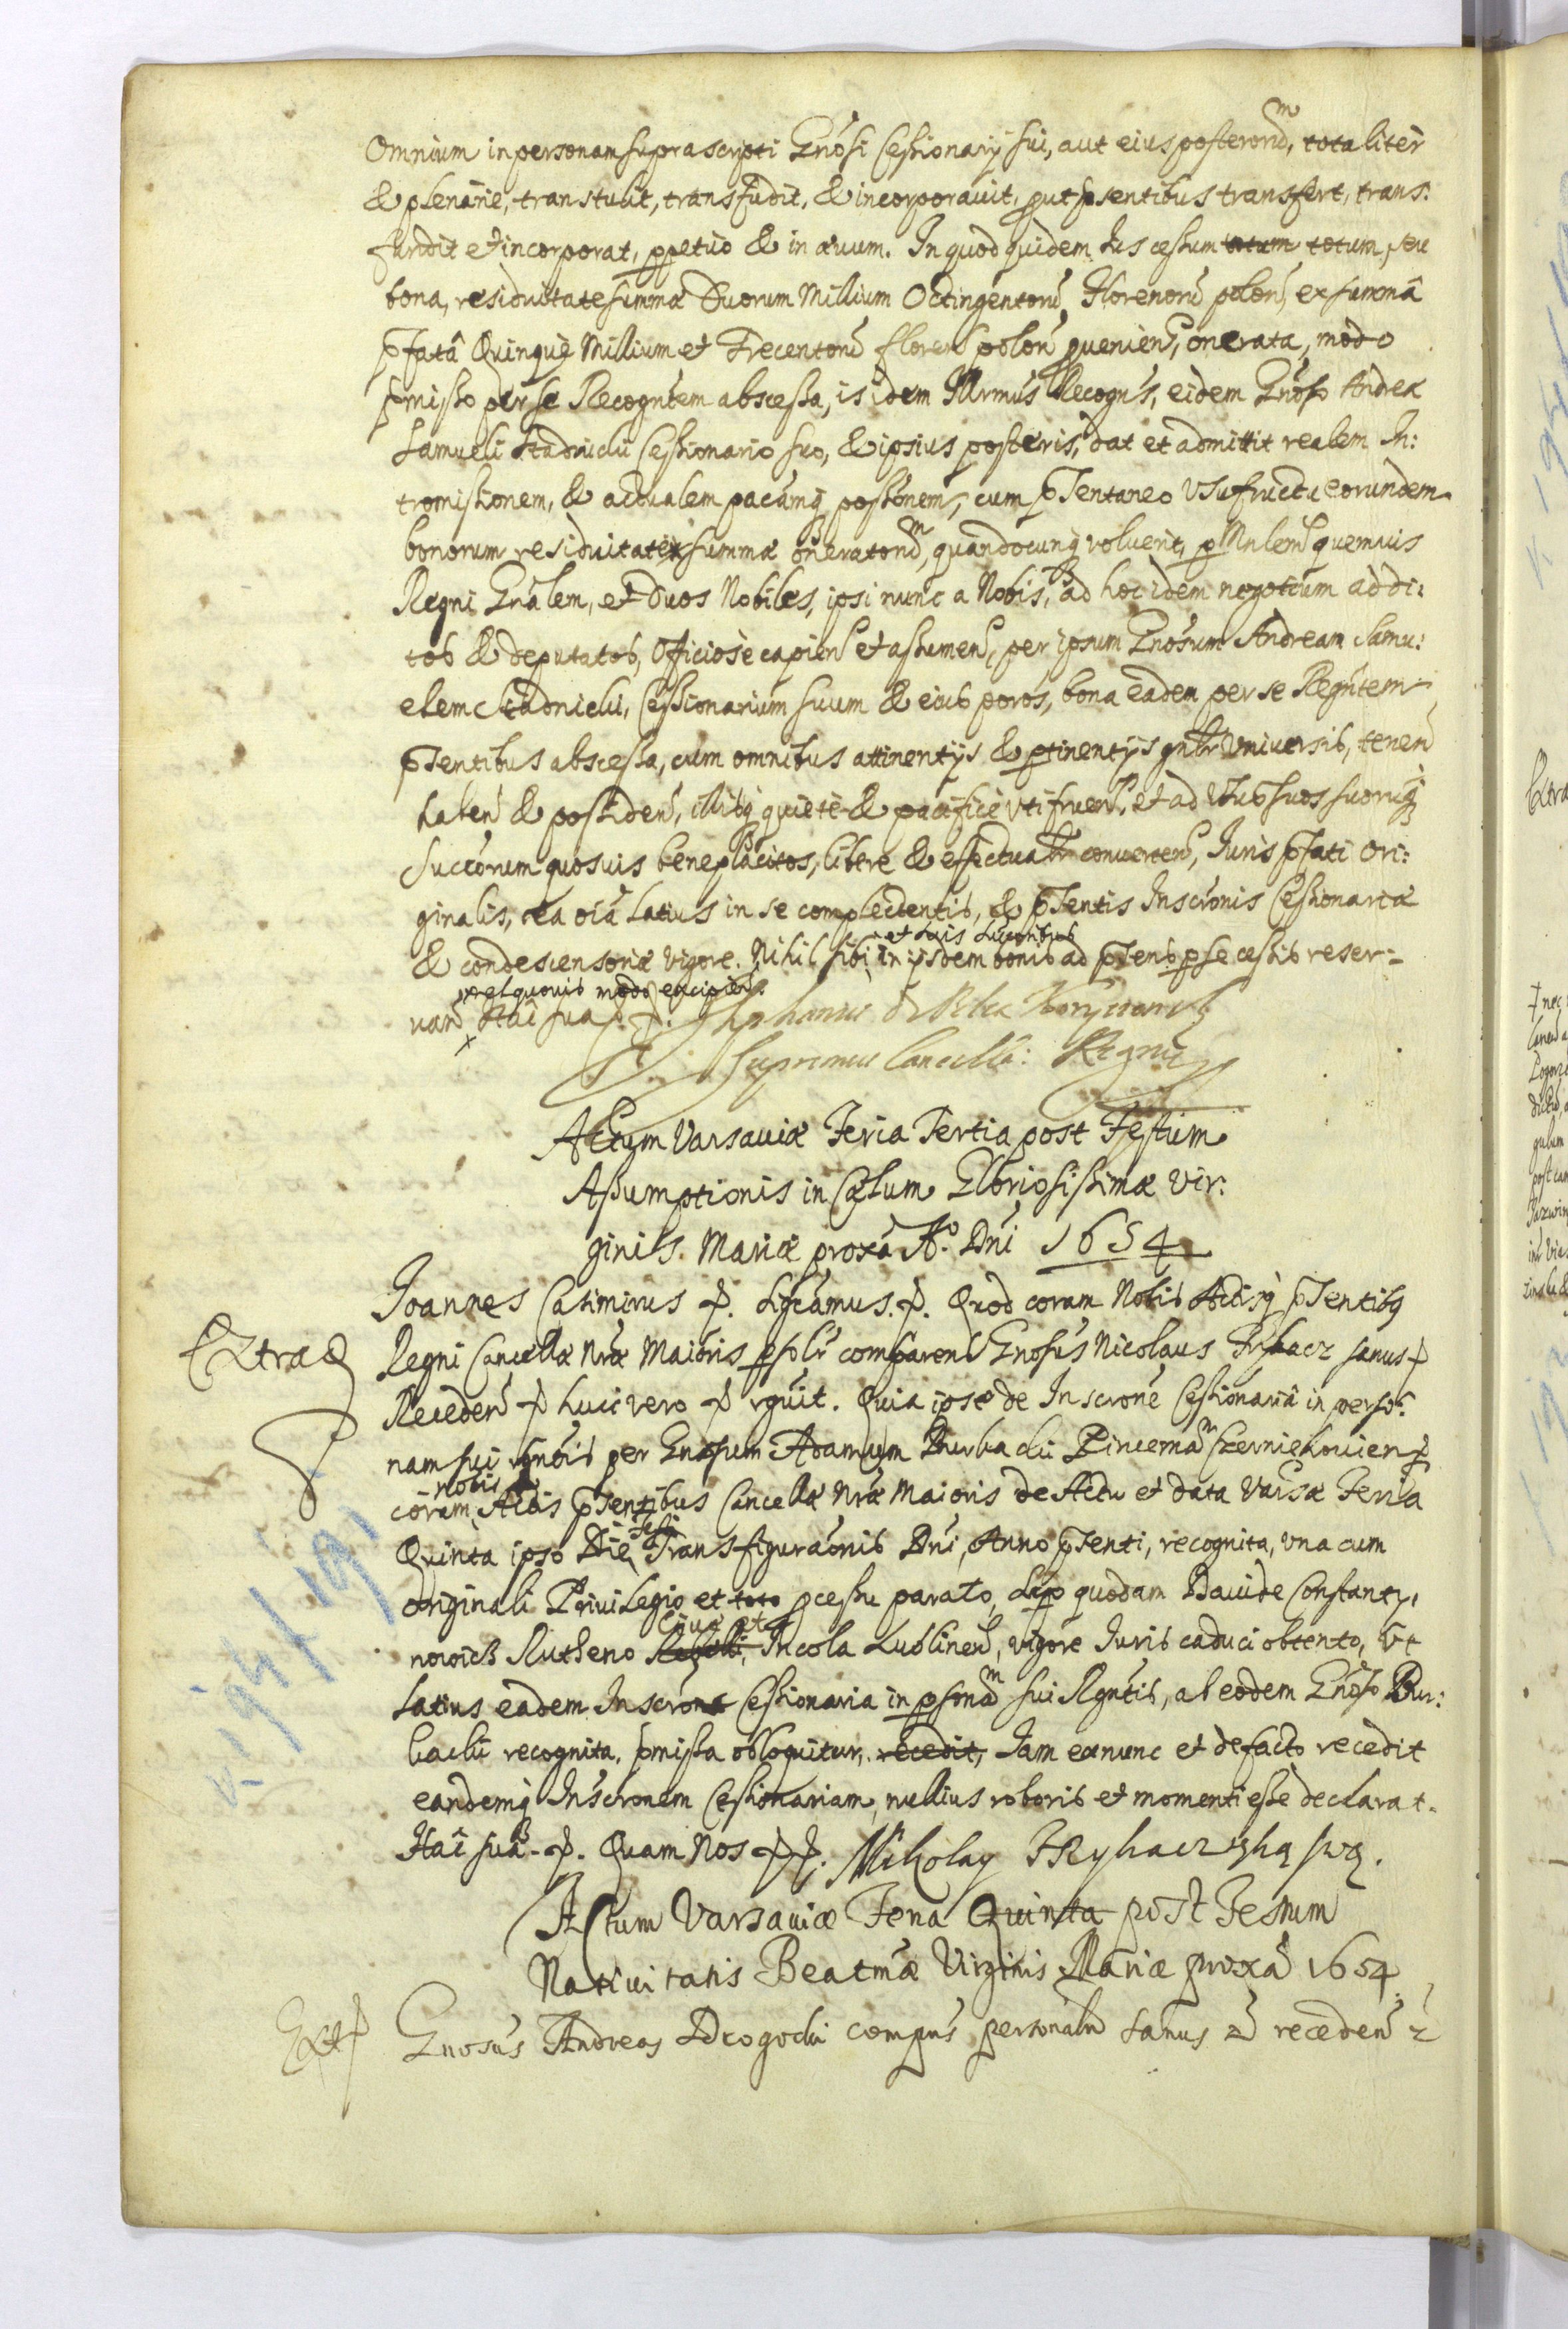 Omnium in personam suprascripti Gnosi Cessionarij sui, aut eius posterorum, totaliter
& plenarie, transtulit, transfudit, & incorporavit, prout psentibus transfert, trans:
fundit et incorporat, ppetuo & in ævum. In quod quidem Ius cessum totum totum, seu
bona, residuitate summæ Duorum Millium Octingentorũ Florenorũ polon, ex summâ
pfatâ Quinque Millium et Trecentorũ floren polon prouenien, onerata, modo
pmisso per se Recogntem abscessa, is idem Illrmus Recogns, eidem Gnoso Andreæ
Samueli Stadnicki Cessionario suo, & ipsius posteris, dat et admittit realem In:
tromissionem, & actualem pacamq possionem, cum pSentaneo Usufructu eorundem
bonorum residuitate summæ oneratorum, quandocunq voluerit, p Mnlem quemuis
Regni Gnalem, et Duos Nobiles, ipsi nunc a Nobis, ad hoc idem negotium addi:
tos & deputatos, Officiose capien et assumen, per ipsum Gnosum Andream Samu:
elem Stadnicki, Cessionarium suum & eius poros, bona eadem per se Regntem
pSentibus abscessa, cum omnibus attinentijs & ptinentijs gnlr Vniversis, tenen
haben & possiden, illisq quiete & pacifice vti fruen, et ad Vsus suos suorumq
Succorum quosuis beneplacitos, libere & effectualr conuerten, Iuris pfati Ori:
ginalis, ea oia latius in se complectentis, & pSentis Inscronis Cessionariæ
et suis Successoribus
& condescensoriæ vigore. Nihil sibi in ijsdem bonis ad pSens p se cessis reser:
vel quouis modo excipien
uan Hac sua
Stephanus de Pilca Koryciński
Supremus Cancella: Regni
Actum Varsaviæ Feria Tertia post Festum
Assumptionis in Cælum Gloriosissimæ Vir:
ginis Mariæ proxa Aº. Dni 1654
Ioannes Casimirus Sigcamus. Quod coram Nobis Actisq pSentibq
Extrad
Regni Cancellæ Nræ Maioris psolr comparens Gnosus Nicolaus Hryhacz sanus
Receden huic vero rguit. Quia ipse de Inscrone Cessionariâ in perso:
nam sui rgntis per Gnosum Adamum Burbacki Pincernam Czerniehouien
nobis
coram Actis pSentibus Cancellæ Nræ Maioris de Actu et data Varsæ Feria
festi
Quinta ipso Die Transfiguraonis Dni, Anno pSenti, recognita, vna cum
Originali Privilegio et toto pcessu parato, sup quodam Dauide Constanty:
Ciue et
nowicz Rutheno Incola Lublinen, vigore Iuris caduci obtento, Vt
latius eadem Inscrone Cessionaria in psonam sui Rgntis, ab eodem Gnoso Bur:
backi recognita, pmissa obloquitur, recedit, Iam exnunc et defacto recedit
eandemq Inscronem Cessionariam, nullius roboris et momenti esse declarat.
Hac sua. Quam Nos Mikolay HRyhacz ręką swą.
Actum Varsaviæ Feria Quinta post Festum
Nativitatis Beatmæ Virginis Mariæ proxa 1654
Gnosus Andreas Drogocki compns personalr sanus receden